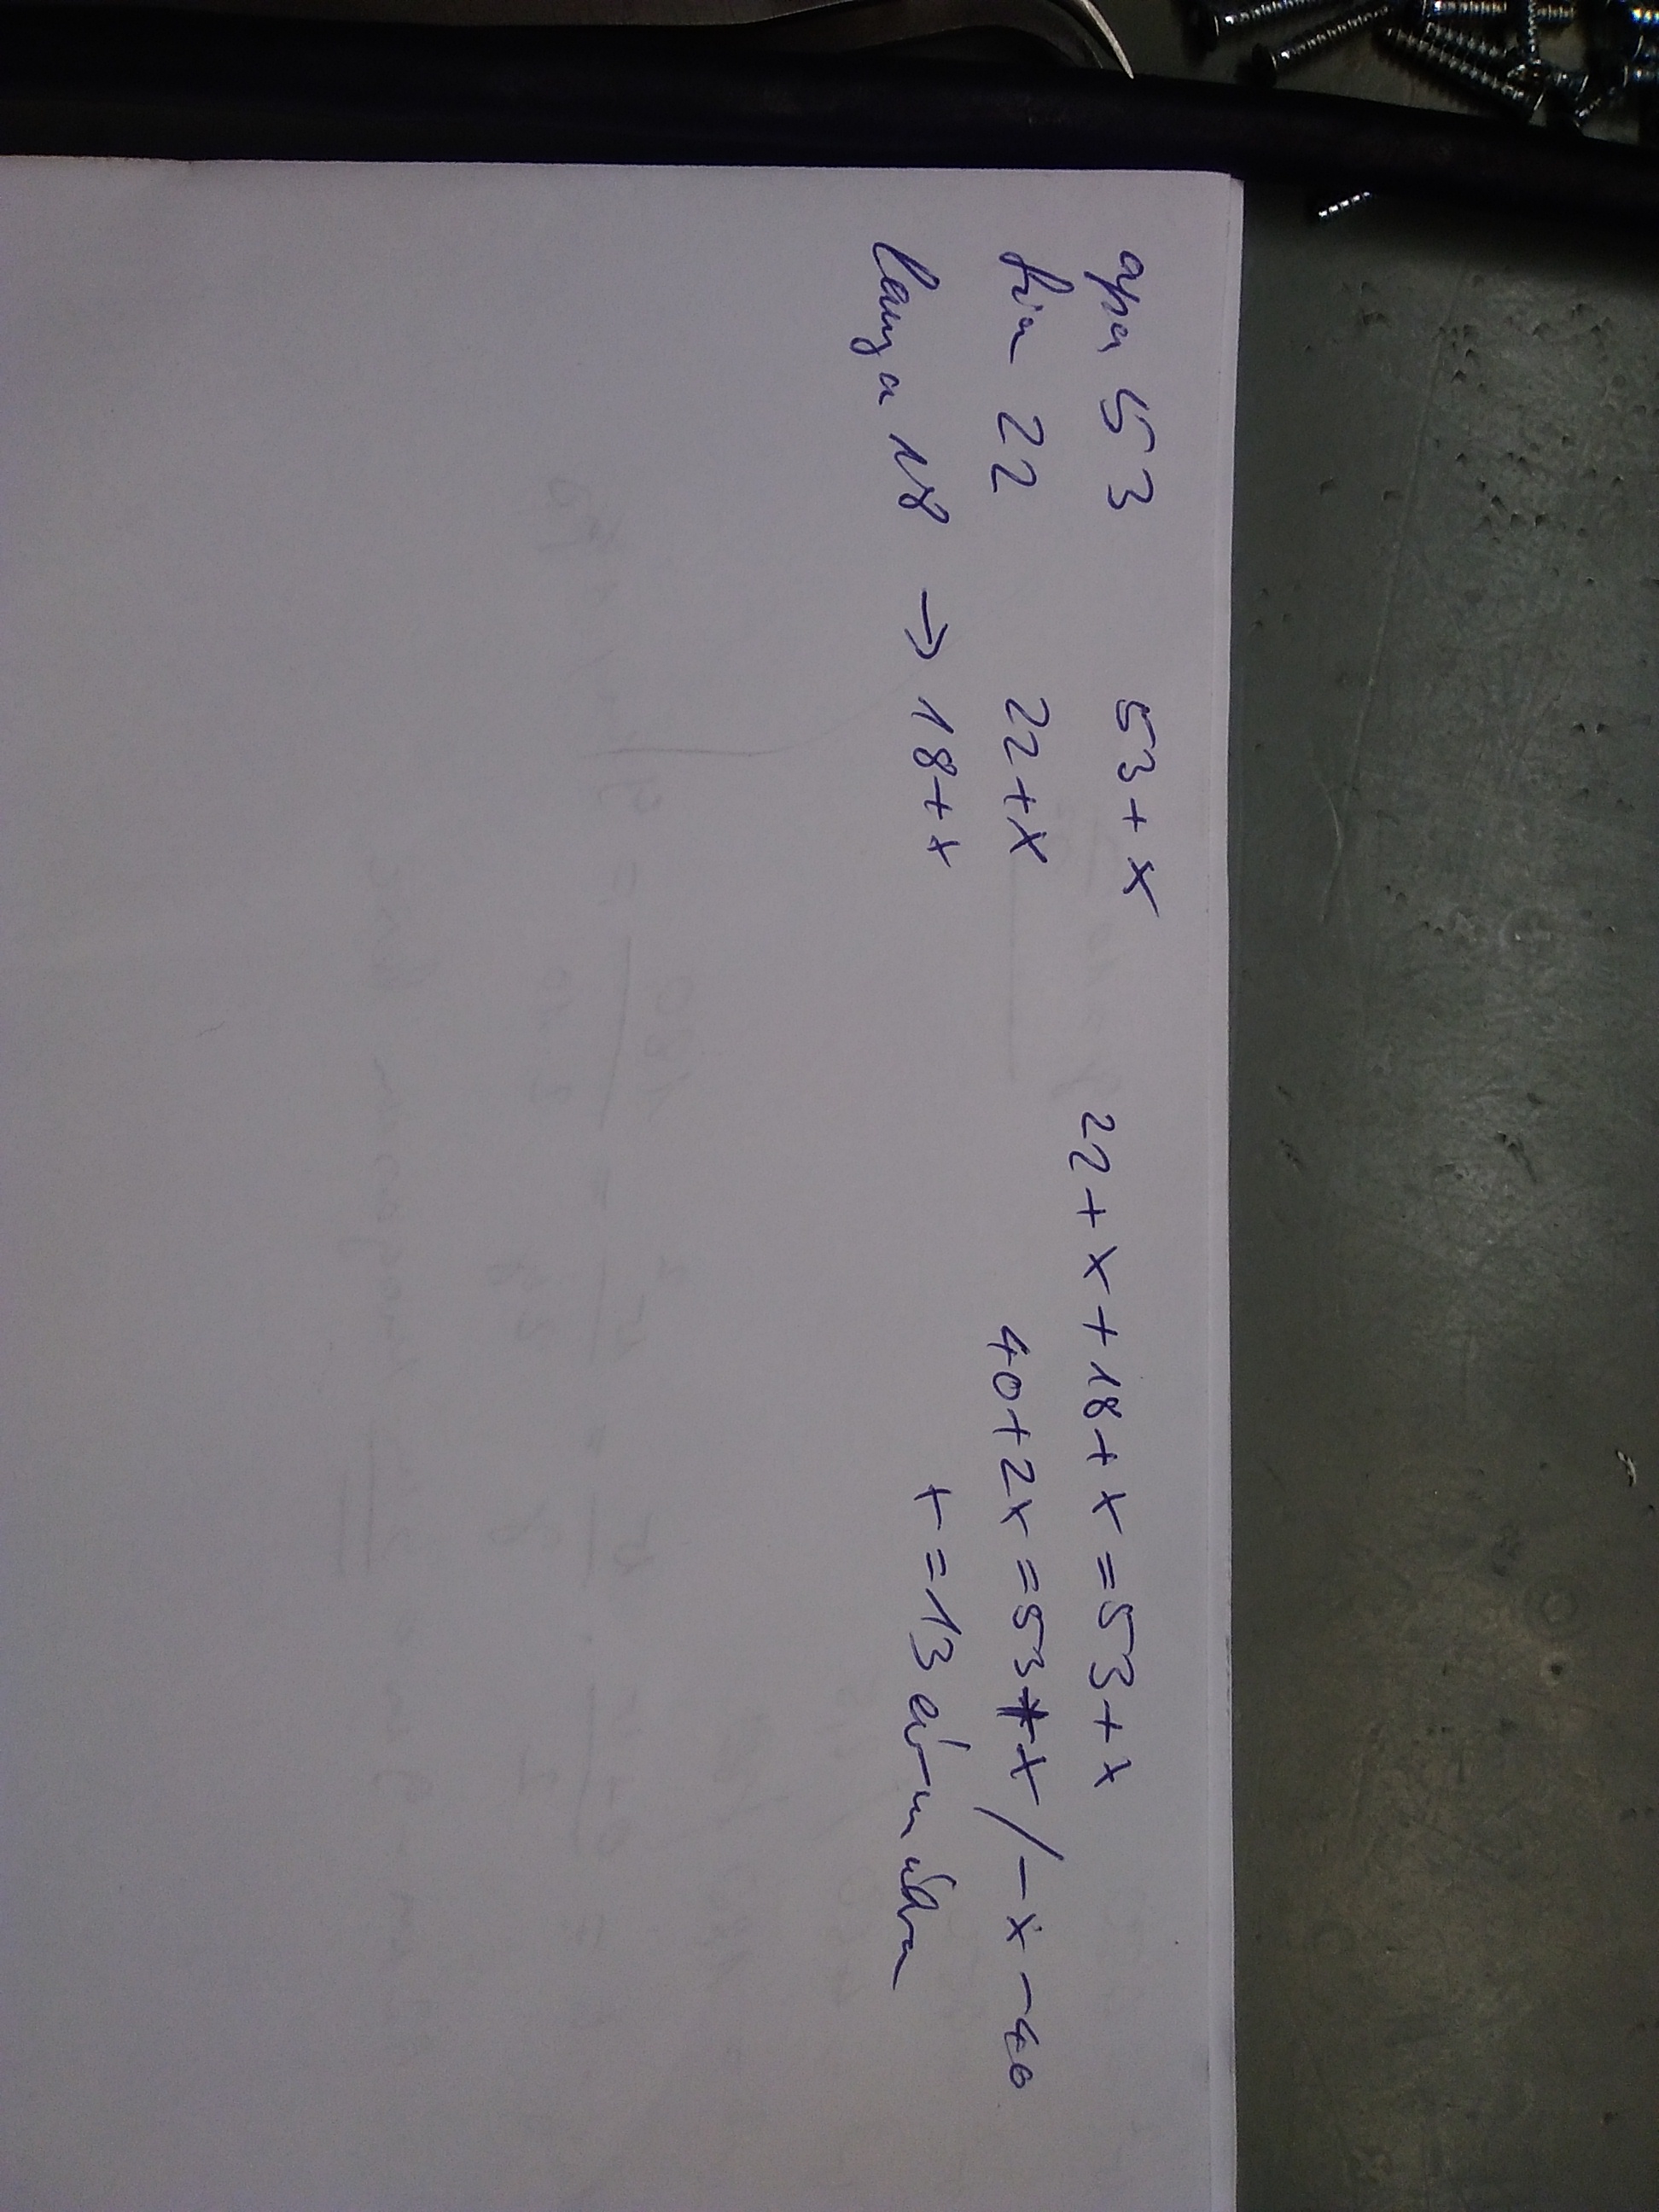 apa 53 53+x 22+x+18+x=53+x
fia 22 22+x 40+2x=53+x /-x-40
lánya 18 → 18+x x=13 év múlva